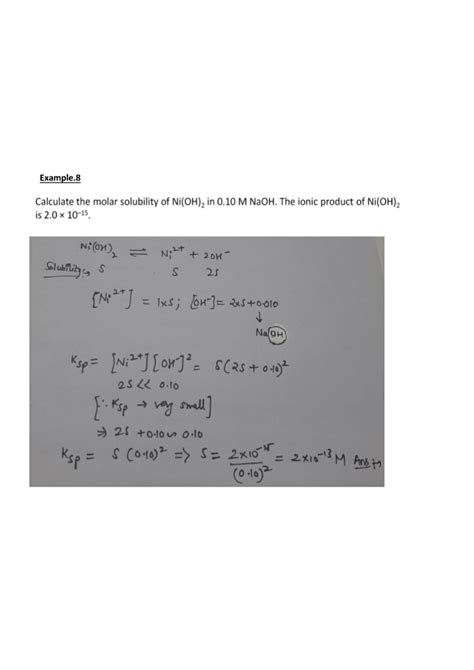 Example.8
Calculate the molar solubility of Ni(OH)₂ in 0.10 M NaOH. The ionic product of Ni(OH)₂
is 2.0 × 10⁻¹⁵.
Ni(OH)₂ ⇌ Ni²⁺ + 2OH⁻
Solubility → S S 2S
[Ni²⁺] = 1×S; [OH⁻] = 2×S+0.010
↓
NaOH
Ksp = [Ni²⁺][OH⁻]² = S(2S + 0.10)²
2S << 0.10
[∵ Ksp → very small]
⇒ 2S + 0.10 ∽ 0.10
Ksp = S (0.10)² => S = 2×10⁻¹⁵/(0.10)² = 2×10⁻¹³ M Ans